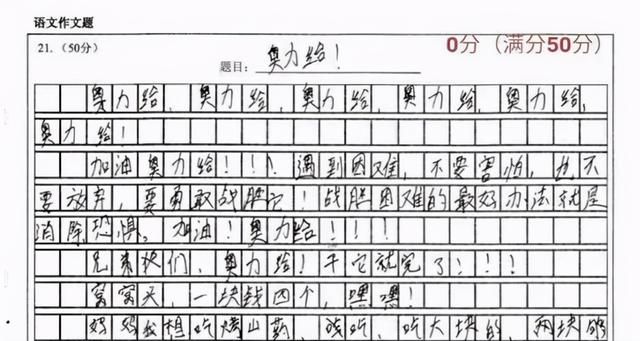 语文作文题
21.（50分）
0分（满分50分）
题目：奥力给！
奥力给，奥力给，奥力给，奥力给，奥力给，
奥力给！
加油奥力给！！！遇到困难，不要害怕，也不
要放弃，要勇敢战胜它！战胜困难的最好办法就是
消除恐惧。加油！奥力给！！！！
兄弟们，奥力给！干它就完了！！！
窝窝头，一块钱四个，嘿嘿！
妈妈我想吃烤山药，我吃，吃大块的，两块够